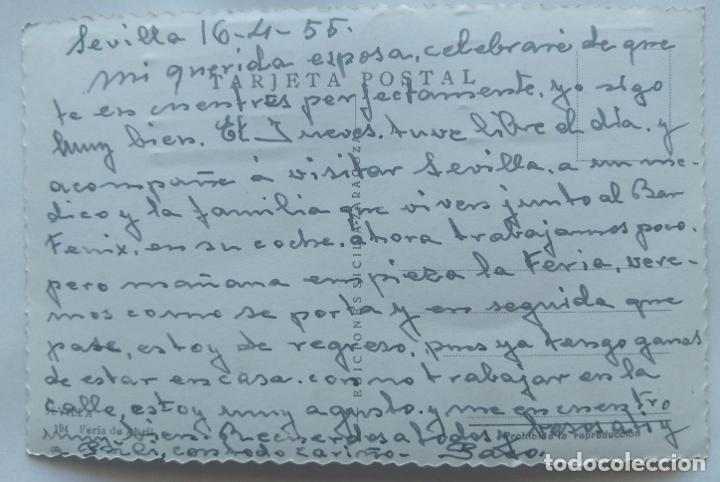 Sevilla 16-4-55.
mi querida esposa, celebraré de que
TARJETA POSTAL
te encuentres perfectamente, yo sigo
muy bien. El Jueves, tuve libre el día, y
acompañe á visitar Sevilla, a un me-
dico y la familia que viven junto al Bar
Fenix, en su coche. ahora trabajamos poco,
pero mañana empieza la Feria, vere-
mos como se porta y en seguida que
pase, estoy de regreso, pues ya tengo ganas
de estar en casa. con no trabajar en la
calle, estoy muy agusto. y me encuentro
muy bien. Recuerdos a todos, besos
a con todo cariño. Paco.
EDICIONES SICILIA ZARAGOZA
SEVILLA
194 Feria de Abril
Prohibida la reproducción
todocoleccion